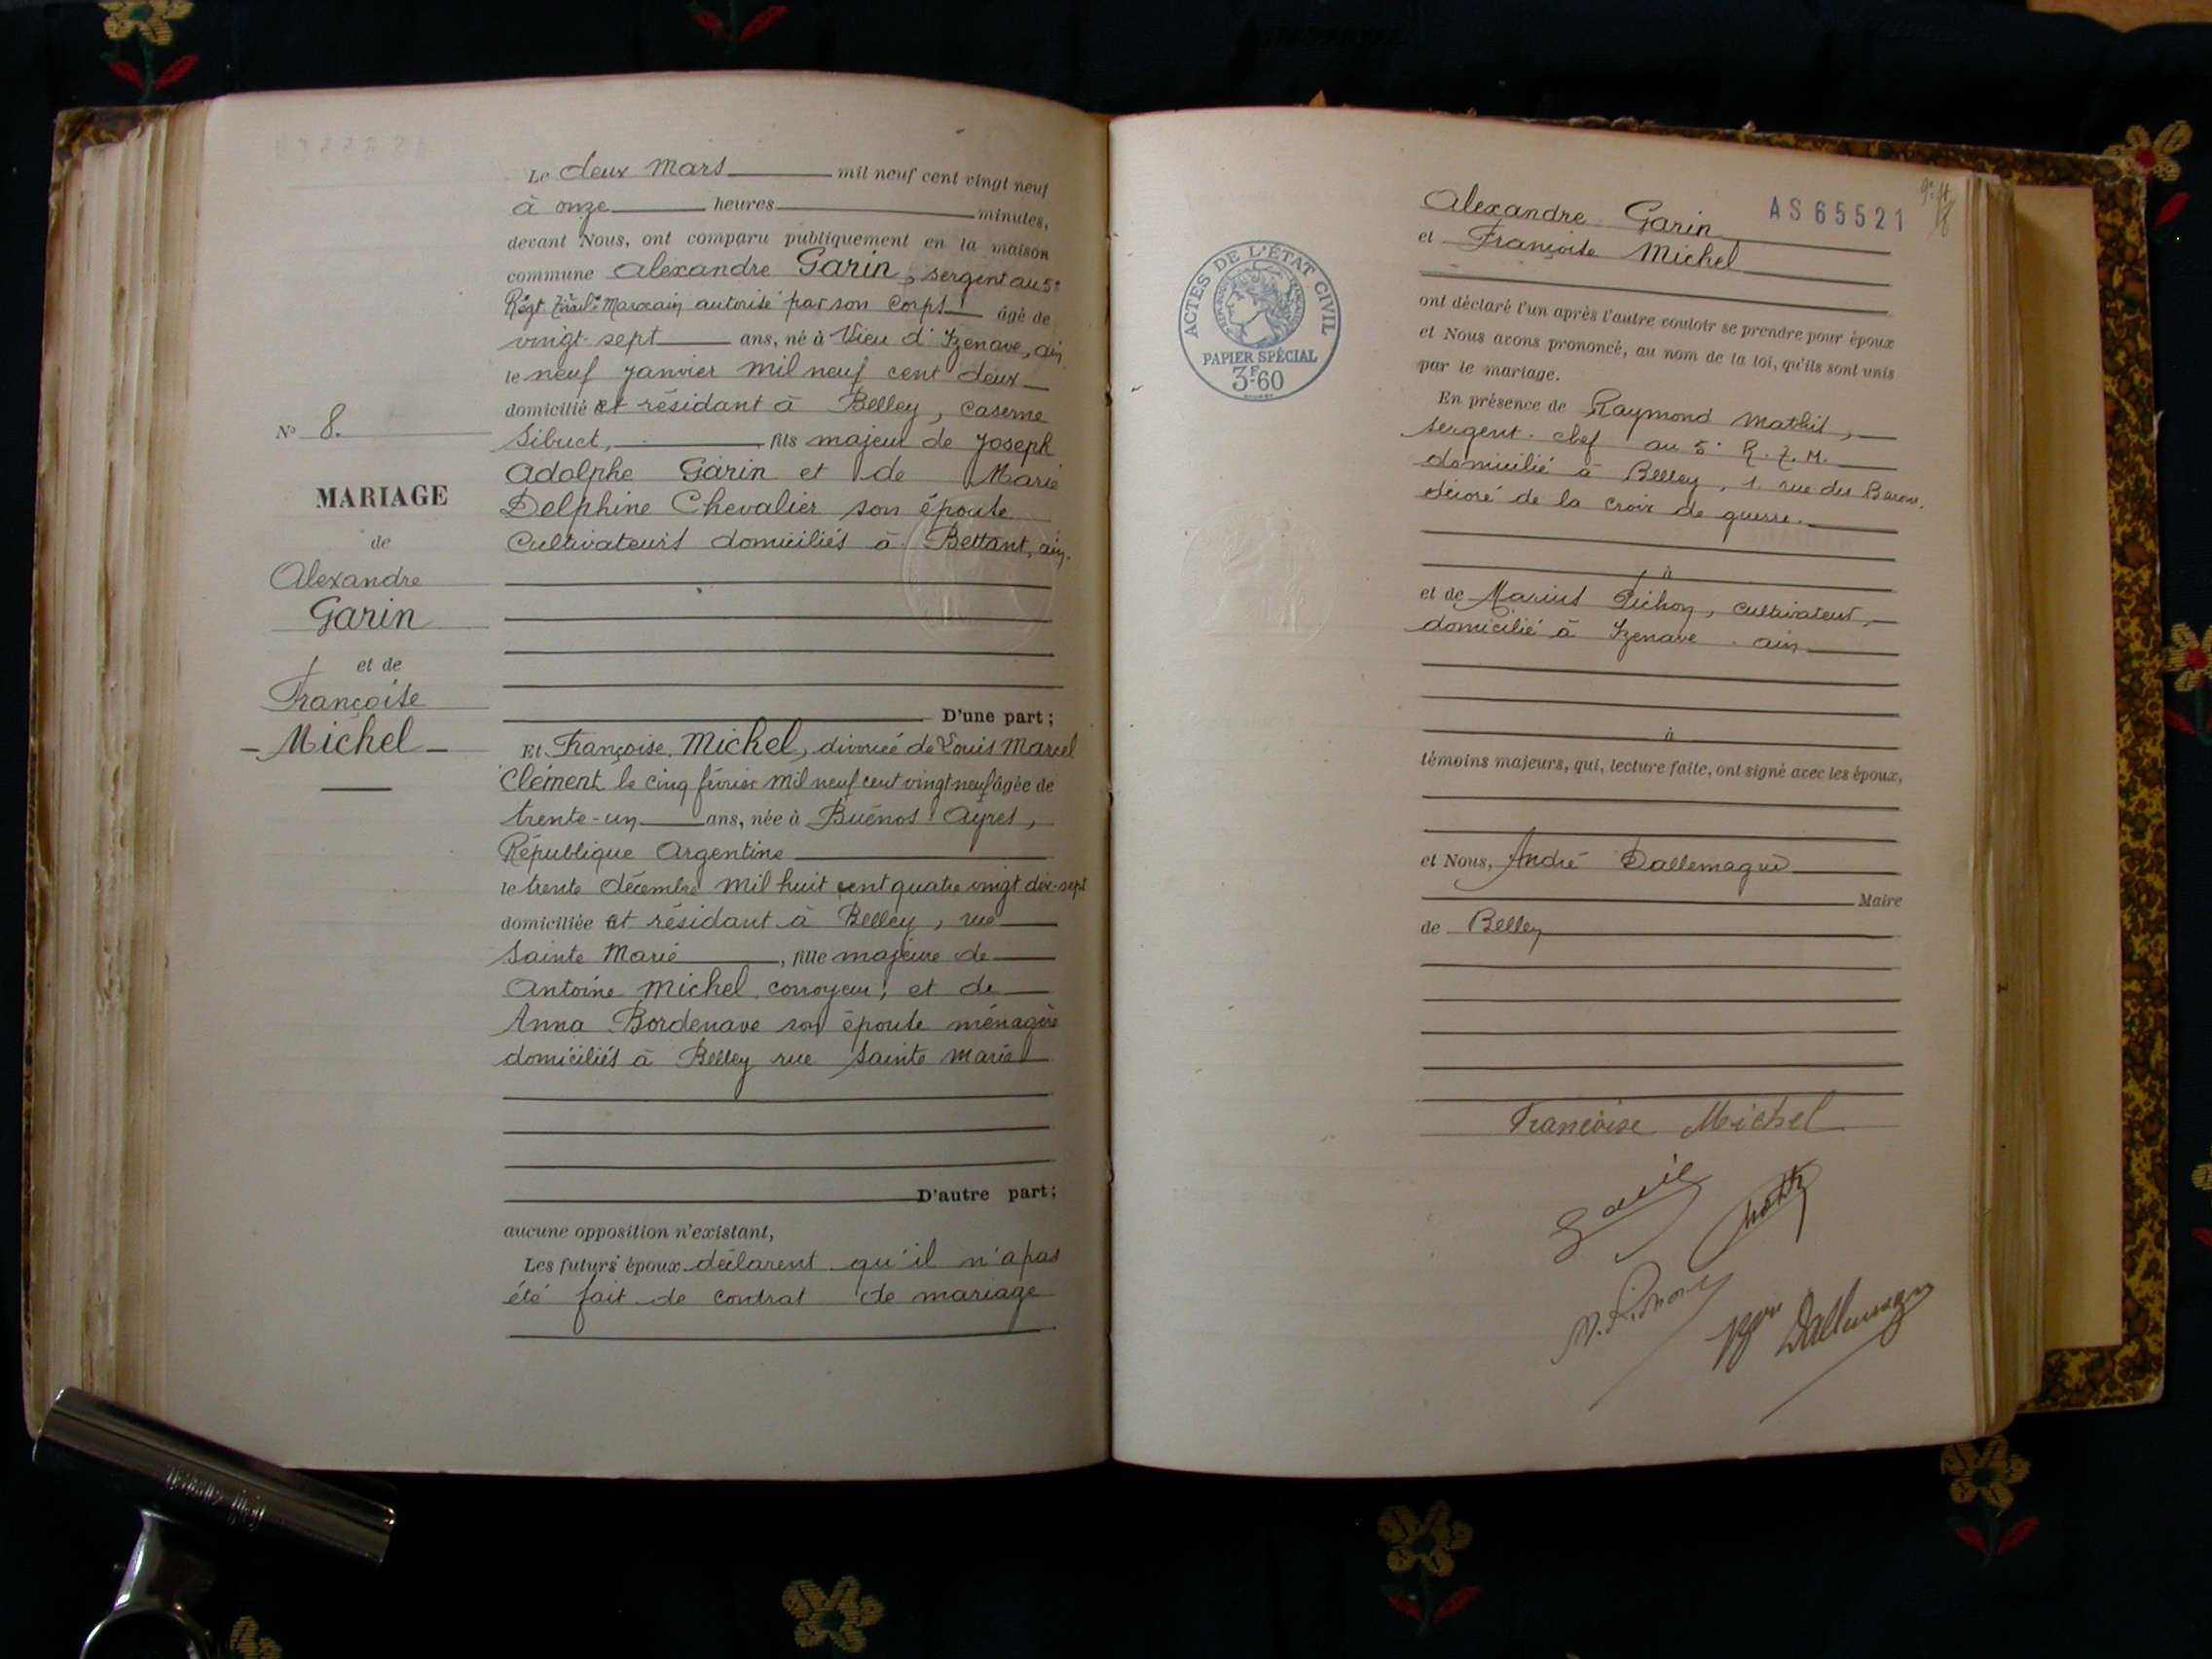 N° 8.
MARIAGE
de
Alexandre
Garin
et de
Françoise
Michel
Le deux Mars mil neuf cent vingt neuf
à onze heures minutes,
devant Nous, ont comparu publiquement en la maison
commune Alexandre Garin, sergent au 5e
Régt Tirail. Marocain autorisé par son Corps âgé de
vingt-sept ans, né à Vieu d'Izenave, ain
le neuf janvier mil neuf cent deux
domicilié et résidant à Belley, caserne
Sibuet, fils majeur de Joseph
Adolphe Garin et de Marie
Delphine Chevalier son épouse
Cultivateurs domiciliés à Bettant, ain.
D'une part;
Et Françoise Michel, divorcée de Louis Marcel
Clément le cinq février mil neuf cent vingt-neuf âgée de
trente-un ans, née à Buénos-Ayres,
République Argentine
le trente décembre mil huit cent quatre vingt dix-sept
domiciliée et résidant à Belley, rue
Sainte Marie, fille majeure de
Antoine Michel, corroyeur, et de
Anna Bordenave son épouse ménagère
domiciliés à Belley rue Sainte Marie
D'autre part;
aucune opposition n'existant,
Les futurs époux déclarent qu'il n'a pas
été fait de contrat de mariage
ACTES DE L'ÉTAT CIVIL
PAPIER SPÉCIAL
3F.60
AS 65521
Alexandre Garin
et Françoise Michel
ont déclaré l'un après l'autre vouloir se prendre pour époux
et Nous avons prononcé, au nom de la loi, qu'ils sont unis
par le mariage.
En présence de Raymond Mathis,
sergent-chef au 5e R.T.M.
domicilié à Belley, 1, rue des Barons,
décoré de la croix de guerre.
à
et de Marius Pichon, cultivateur,
domicilié à Izenave. ain
à
témoins majeurs, qui, lecture faite, ont signé avec les époux,
et Nous, André Dallemagne
Maire
de Belley
Françoise Michel
Garin
M. Pichon
Dallemagne